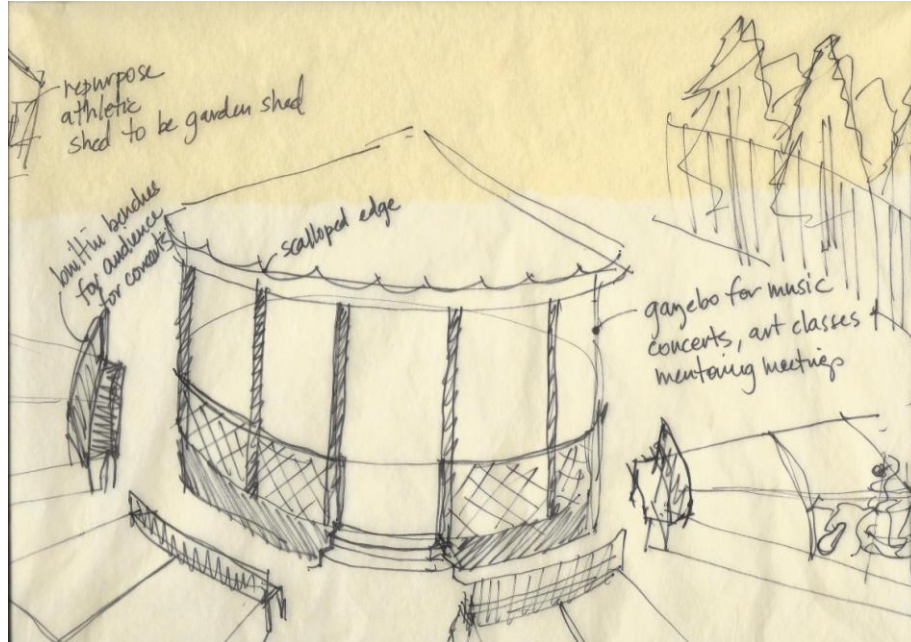 repurpose
athletic
shed to be garden shed
built-in benches
for audience
for concerts
scalloped edge
gazebo for music
concerts, art classes +
mentoring meetings